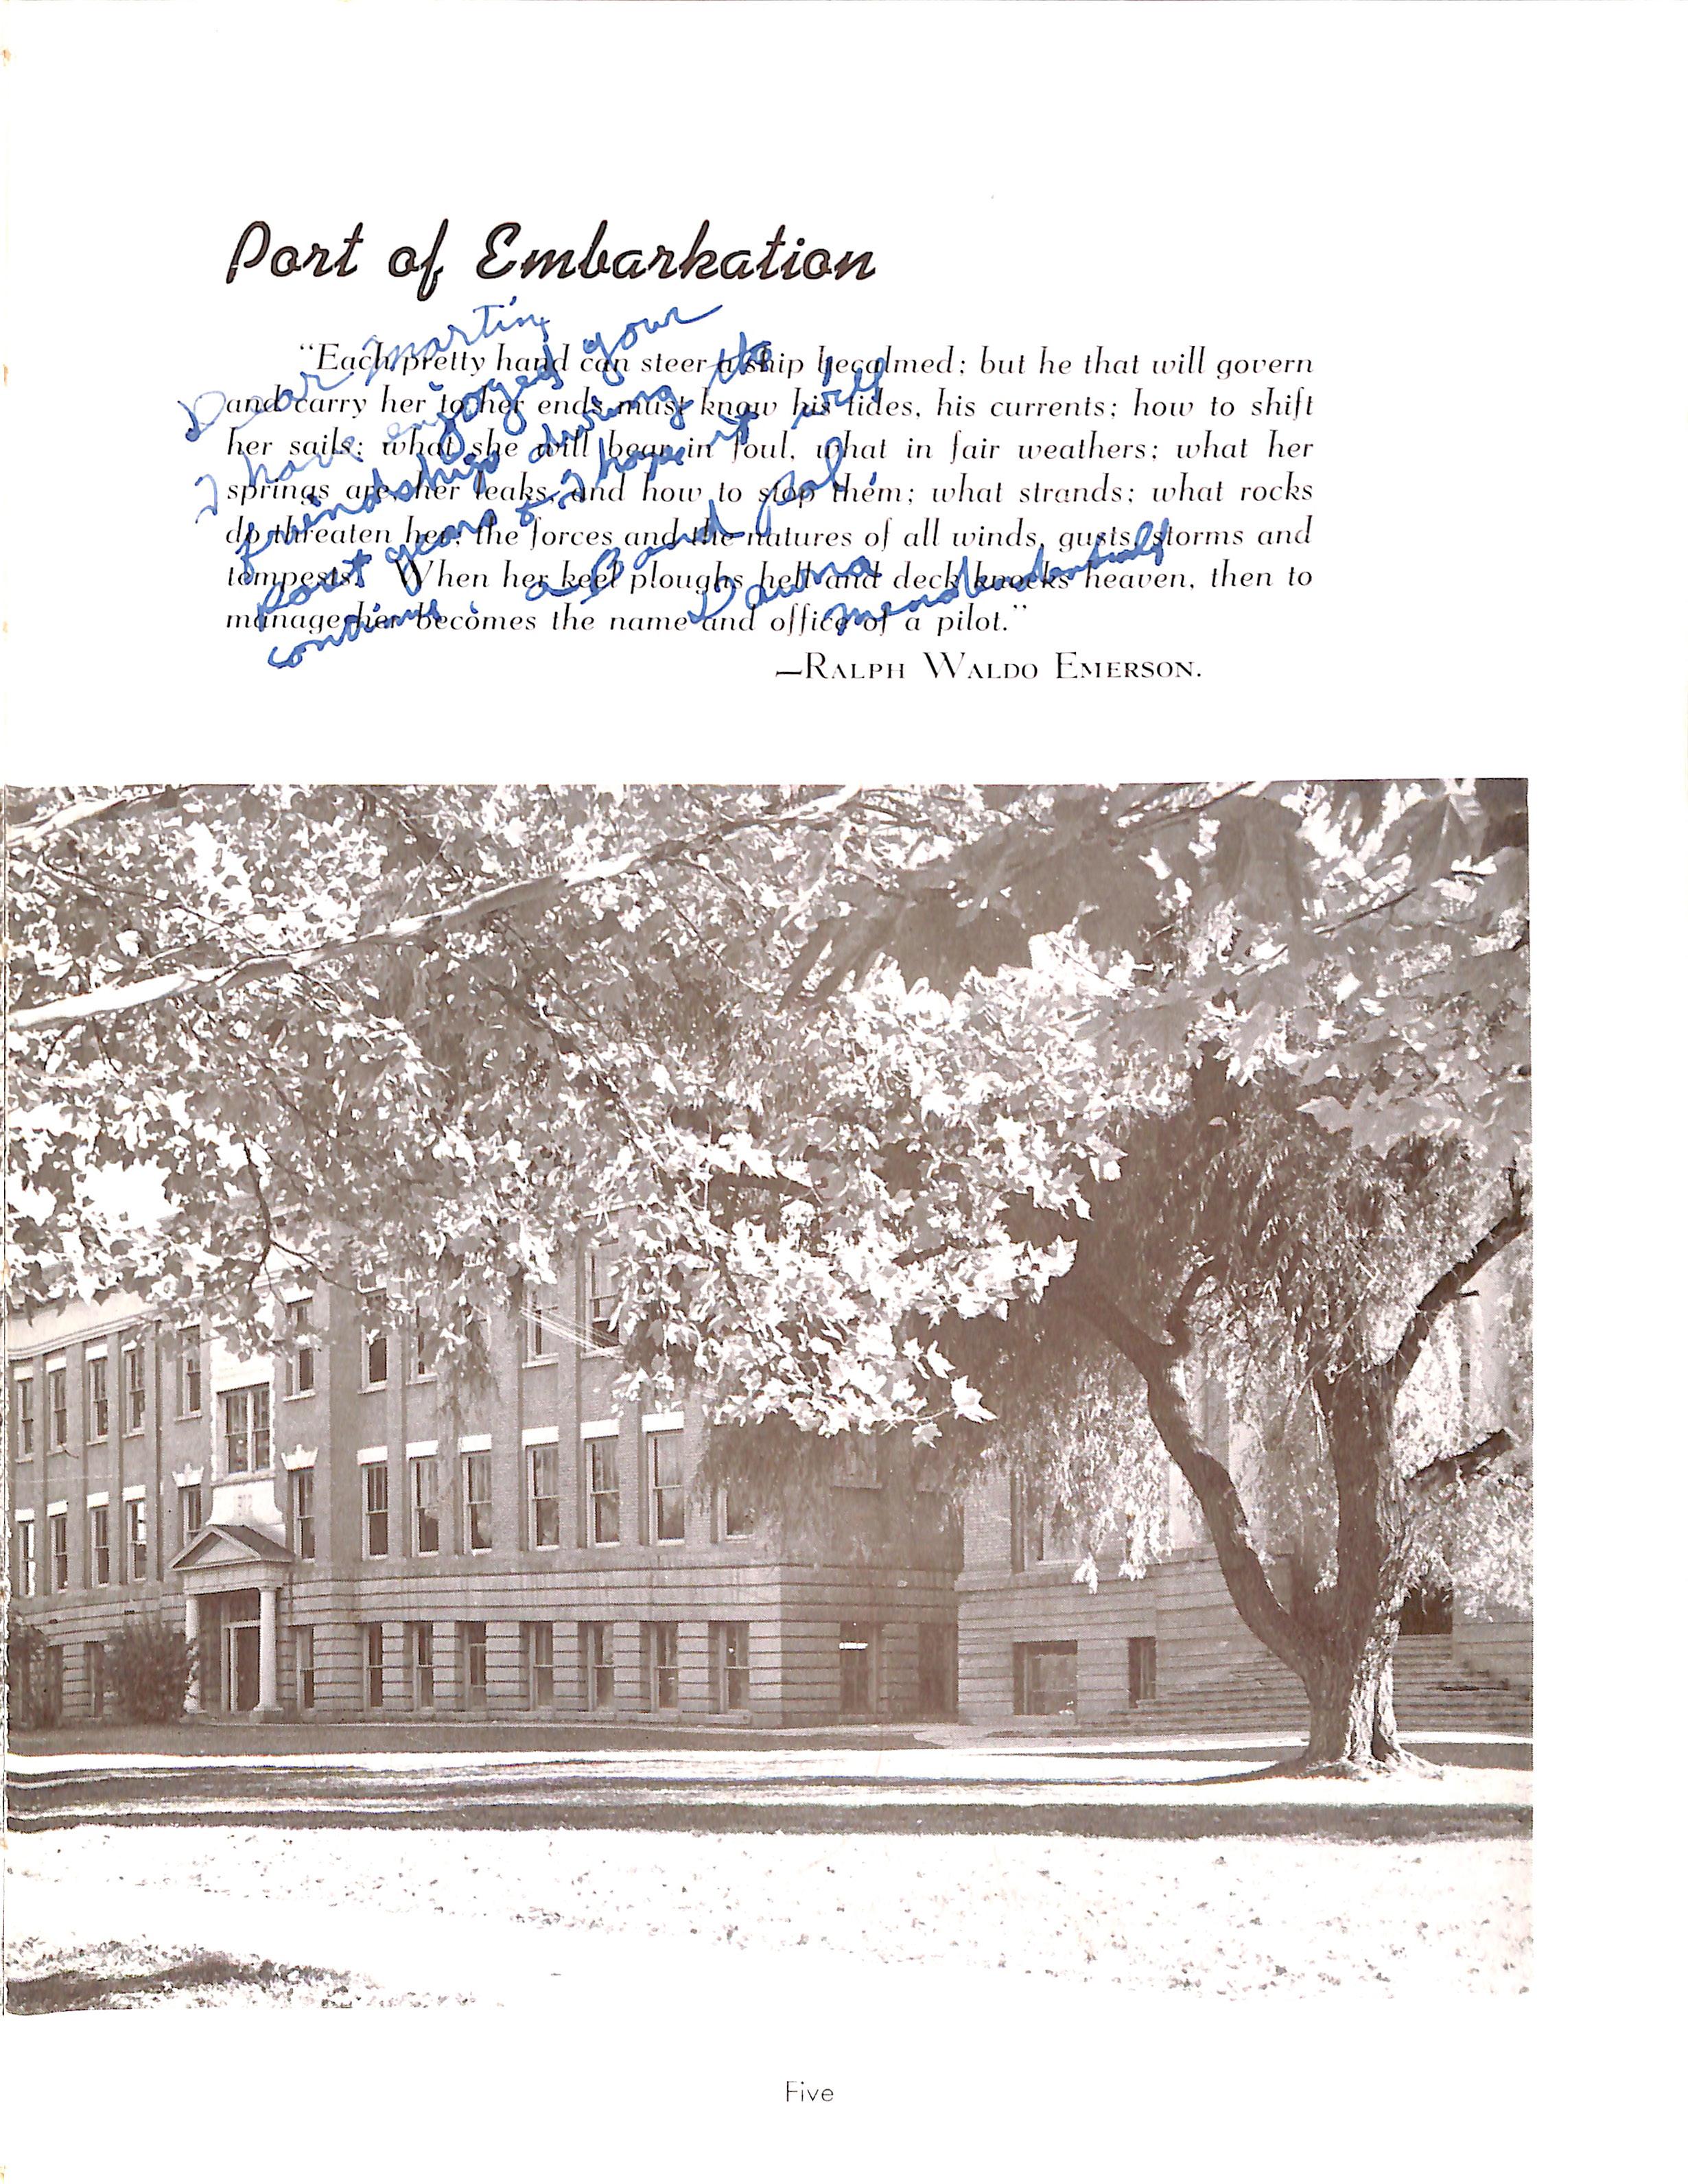 Port of Embarkation
Dear Martin,
I have enjoyed your
friendship during the
past years & I hope it will
continue.
a Band pal
Dawna
"Each pretty hand can steer a ship becalmed; but he that will govern
and carry her to her ends must know his tides, his currents; how to shift
her sails; what she will bear in foul, what in fair weathers; what her
springs are, her leaks, and how to stop them; what strands; what rocks
do threaten her; the forces and the natures of all winds, gusts, storms and
tempests. When her keel ploughs hell and deck knocks heaven, then to
manage her becomes the name and office of a pilot."
—Ralph Waldo Emerson.
Five